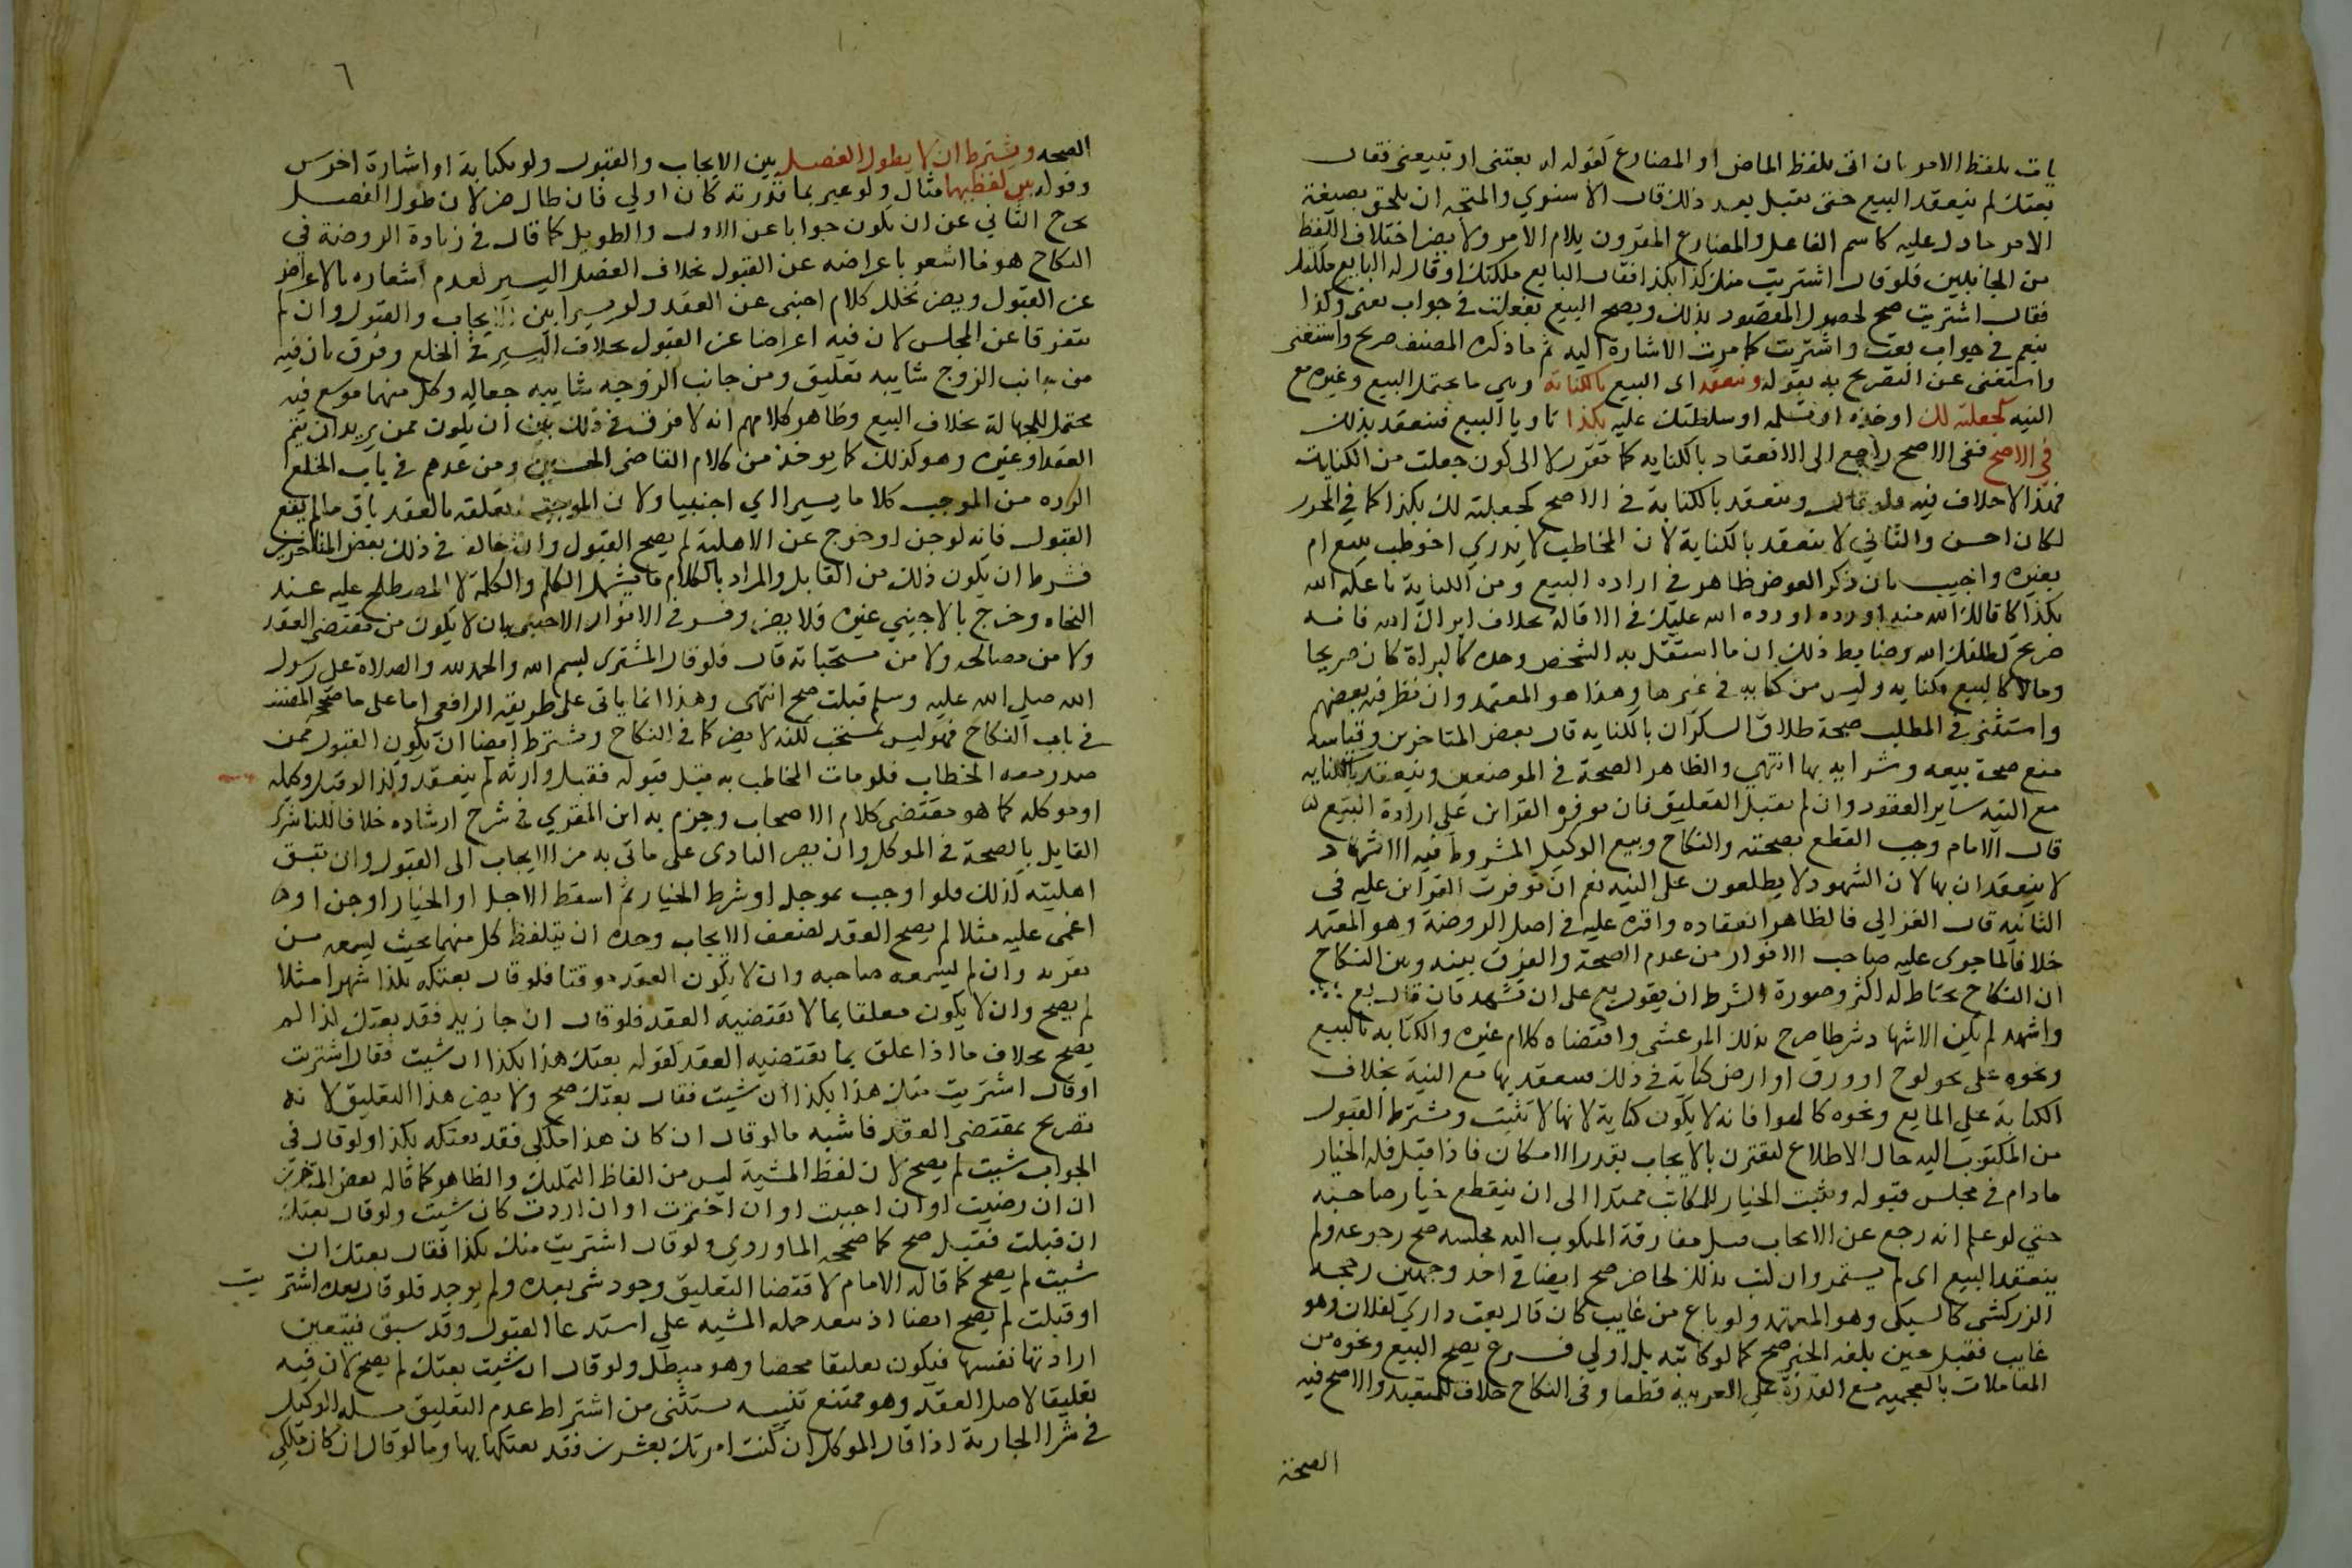 يات بلفظ الامر بان اتى بلفظ الماضى او المضارع كقوله له بعتنى او تبيعنى فقال
بعتك لم ينعقد البيع حتى يقبل بعد ذلك قال الاسنوي والمتجه ان يلحق بصيغة
الامر ما دل عليه كاسم الفاعل والمضارع المقرون بلام الامر ولا يضر اختلاف اللفظ
من الجانبين فلو قال اشتريت منك كذا بكذا فقال البايع ملكتك او قال له البايع ملكتك
فقال اشتريت صح لحصول المقصود بذلك ويصح البيع بفعلت في جواب بعنى وكذا
بنعم في جواب بعت واشتريت كما مرت الاشارة اليه ثم ما ذكره المصنف صريح واستغنى
واستغنى عن التصريح به بقوله وينعقد اى البيع بالكناية وهي ما يحتمل البيع وغيره مع
النيه كجعلته لك او خذه او تسلمه او سلطتك عليه بكذا ناويا البيع فينعقد بذلك
في الاصح ففى الاصح راجع الى الانعقاد بالكنايه كما تقرر لا الى كون جعلت من الكنايات
فهذا لا خلاف فيه فلو قال وينعقد بالكناية في الاصح كجعلته لك بكذا كما في المحرر
لكان احسن والثاني لا ينعقد بالكناية لان المخاطب لا يدري اخوطب ببيع ام
بغيره واجيب بان ذكر العوض ظاهر في اراده البيع ومن الكناية باعك الله
بكذا كاقالك الله منه او رده الله عليك في الاقالة بخلاف ابراك الله فانه
صريح كطلقك الله وضابط ذلك ان ما استقل به الشخص وحده كالبراة كان صريحا
وما لا كالبيع فكنايه وليس من كنايه في غيرها وهذا هو المعتمد وان نظر فيه بعضهم
واستثنى في المطلب صحة طلاق السكران بالكنايه قال بعض المتاخرين وقياسه
منع صحة بيعه وشرايه بها انتهي والظاهر الصحة في الموضعين وينعقد بالكنايه
مع النيه ساير العقود وان لم يقبل التعليق فان توفره القراين على ارادة البيع
قال الامام وجب القطع بصحته والنكاح وبيع الوكيل المشروط فيه الاشهاد
لا ينعقدان بها لان الشهود لا يطلعون على النيه نعم ان توفرت القراين عليه في
الثانيه قال الغزالي فالظاهر انعقاده واقره عليه في اصل الروضة وهو المعتمد
خلافا لما جرى عليه صاحب الانوار من عدم الصحة والفرق بينه وبين النكاح
ان النكاح يحتاط له اكثر وصورة الشرط ان يقول بع على ان تشهد فان قال بع
واشهد لم يكن الاشهاد شرطا صرح بذلك المرعشى واقتضاه كلام غيره والكتابه بالبيع
ونحوه على نحو لوح او ورق او ارض كناية في ذلك فينعقد بها مع النية بخلاف
الكتابة علي المايع ونحوه كالهوا فانه لا يكون كناية لانها لا تثبت ويشترط القبول
من المكتوب اليه حال الاطلاع ليقترن بالايجاب بقدر الامكان فاذا قبل فله الخيار
ما دام في مجلس قبوله ويثبت الخيار للكاتب ممتدا الى ان ينقطع خيار صاحبه
حتي لو علم انه رجع عن الايجاب قبل مفارقة المكتوب اليه مجلسه صح رجوعه ولم
ينعقد البيع اى لم يستمر وان كتب بذلك لحاضر صح ايضا في احد وجهين رجحه
الزركشى كالسبكى وهو المعتمد ولو باع من غايب كان قال بعت داري لفلان وهو
غايب فقبل حين بلغه الخبر صح كما لو كاتبه بل اولي فرع يصح البيع ونحوه من
المعاملات بالعجميه مع القدرة على العربية قطعا وفى النكاح خلاف للتعبد والاصح فيه
الصحة
٦
الصحه ويشترط ان لا يطول الفصل بين الايجاب والقبول ولو بكتابة او اشارة اخرس
وقوله بين لفظيهما مثال ولو عبر بما قدرته كان اولي فان طال ضر لان طول الفصل
يخرج الثاني عن ان يكون جوابا عن الاول والطويل كما قال في زيادة الروضة في
النكاح هو ما اشعر باعراضه عن القبول بخلاف الفصل اليسير لعدم اشعاره بالاعراض
عن القبول ويضر تخلل كلام اجنبى عن العقد ولو يسيرا بين الايجاب والقبول وان لم
يتفرقا عن المجلس لان فيه اعراضا عن القبول بخلاف اليسير في الخلع وفرق بان فيه
من جانب الزوج شايبه تعليق ومن جانب الزوجه شايبه جعاله وكل منهما موسع فيه
محتمل للجهالة بخلاف البيع وظاهر كلامهم انه لا فرق في ذلك بين ان يكون ممن يريد ان يتم
العقد او غيره وهو كذلك كما يوخذ من كلام القاضى الحسين ومن عدهم في باب الخلع
الرده من الموجب كلاما يسيرا اي اجنبيا ولان الموجب تعلقه بالعقد باق ما لم يقع
القبول فانه لو جن او خرج عن الاهلية لم يصح القبول وان خالف في ذلك بعض المتاخرين
فشرط ان يكون ذلك من القابل والمراد بالكلام ما يشمل الكلم والكلمة لا المصطلح عليه عند
النحاه وخرج بالاجنبي غيره فلا يضر وفسر في الانوار الاجنبى بان لا يكون من مقتضى العقد
ولا من مصالحه ولا من مستحباته قال فلو قال المشترى بسم الله والحمد لله والصلاة على رسول
الله صلى الله عليه وسلم قبلت صح انتهى وهذا انما ياتى على طريقة الرافعى اما على ما صححه المصنف
في باب النكاح فهو ليس بمستحب لكنه لا يضر كما في النكاح ويشترط ايضا ان يكون القبول ممن
صدر معه الخطاب فلو مات المخاطب به قبل قبوله فقبل وارثه لم ينعقد وكذا لو قبل وكيله
او موكله كما هو مقتضى كلام الاصحاب وجزم به ابن المقري في شرح ارشاده خلافا للناشرى
القايل بالصحة في الموكل وان يصر البادى على ما اتى به من الايجاب الى القبول وان تبقى
اهليته كذلك فلو اوجب بموجل او شرط الخيار ثم اسقط الاجل او الخيار او جن او
اغمى عليه مثلا لم يصح العقد لضعف الايجاب وحده ان يتلفظ كل منهما بحيث يسمعه من
بقربه وان لم يسمعه صاحبه وان لا يكون العقد موقتا فلو قال بعتكه بكذا شهرا مثلا
لم يصح وان لا يكون معلقا بما لا تقتضيه العقد فلو قال ان جا زيد فقد بعتك كذا لم
يصح بخلاف ما اذا علق بما يقتضيه العقد كقوله بعتك هذا بكذا ان شيت فقال اشتريت
او قال اشتريت منك هذا بكذا ان شيت فقال بعتك صح ولا يضر هذا التعليق لانه
تصريح بمقتضى العقد فاشبه ما لو قال ان كان هذا ملكى فقد بعتكه بكذا ولو قال في
الجواب شيت لم يصح لان لفظ المشية ليس من الفاظ التمليك والظاهر كما قاله بعض المتاخرين
ان ان رضيت او ان احببت او ان اخترت او ان اردت كان شيت ولو قال بعتك
ان قبلت فقبل صح كما صححه الماوردي ولو قال اشتريت منك بكذا فقال بعتك ان
شيت لم يصح كما قاله الامام لاقتضا التعليق وجود شى بعده ولم يوجد فلو قال بعده اشتريت
او قبلت لم يصح ايضا اذ يبعد حمله المشيه علي استدعا القبول وقد سبق فيتعين
ارادتها نفسها فيكون تعليقا محضا وهو مبطل ولو قال ان شيت بعتك لم يصح لان فيه
تعليقا لاصل العقد وهو ممتنع تنبيه يستثنى من اشتراط عدم التعليق مسله الوكيل
في شرا الجارية اذا قال الموكل ان كنت امرتك بعشرين فقد بعتكها بها وما لو قال ان كان ملكى